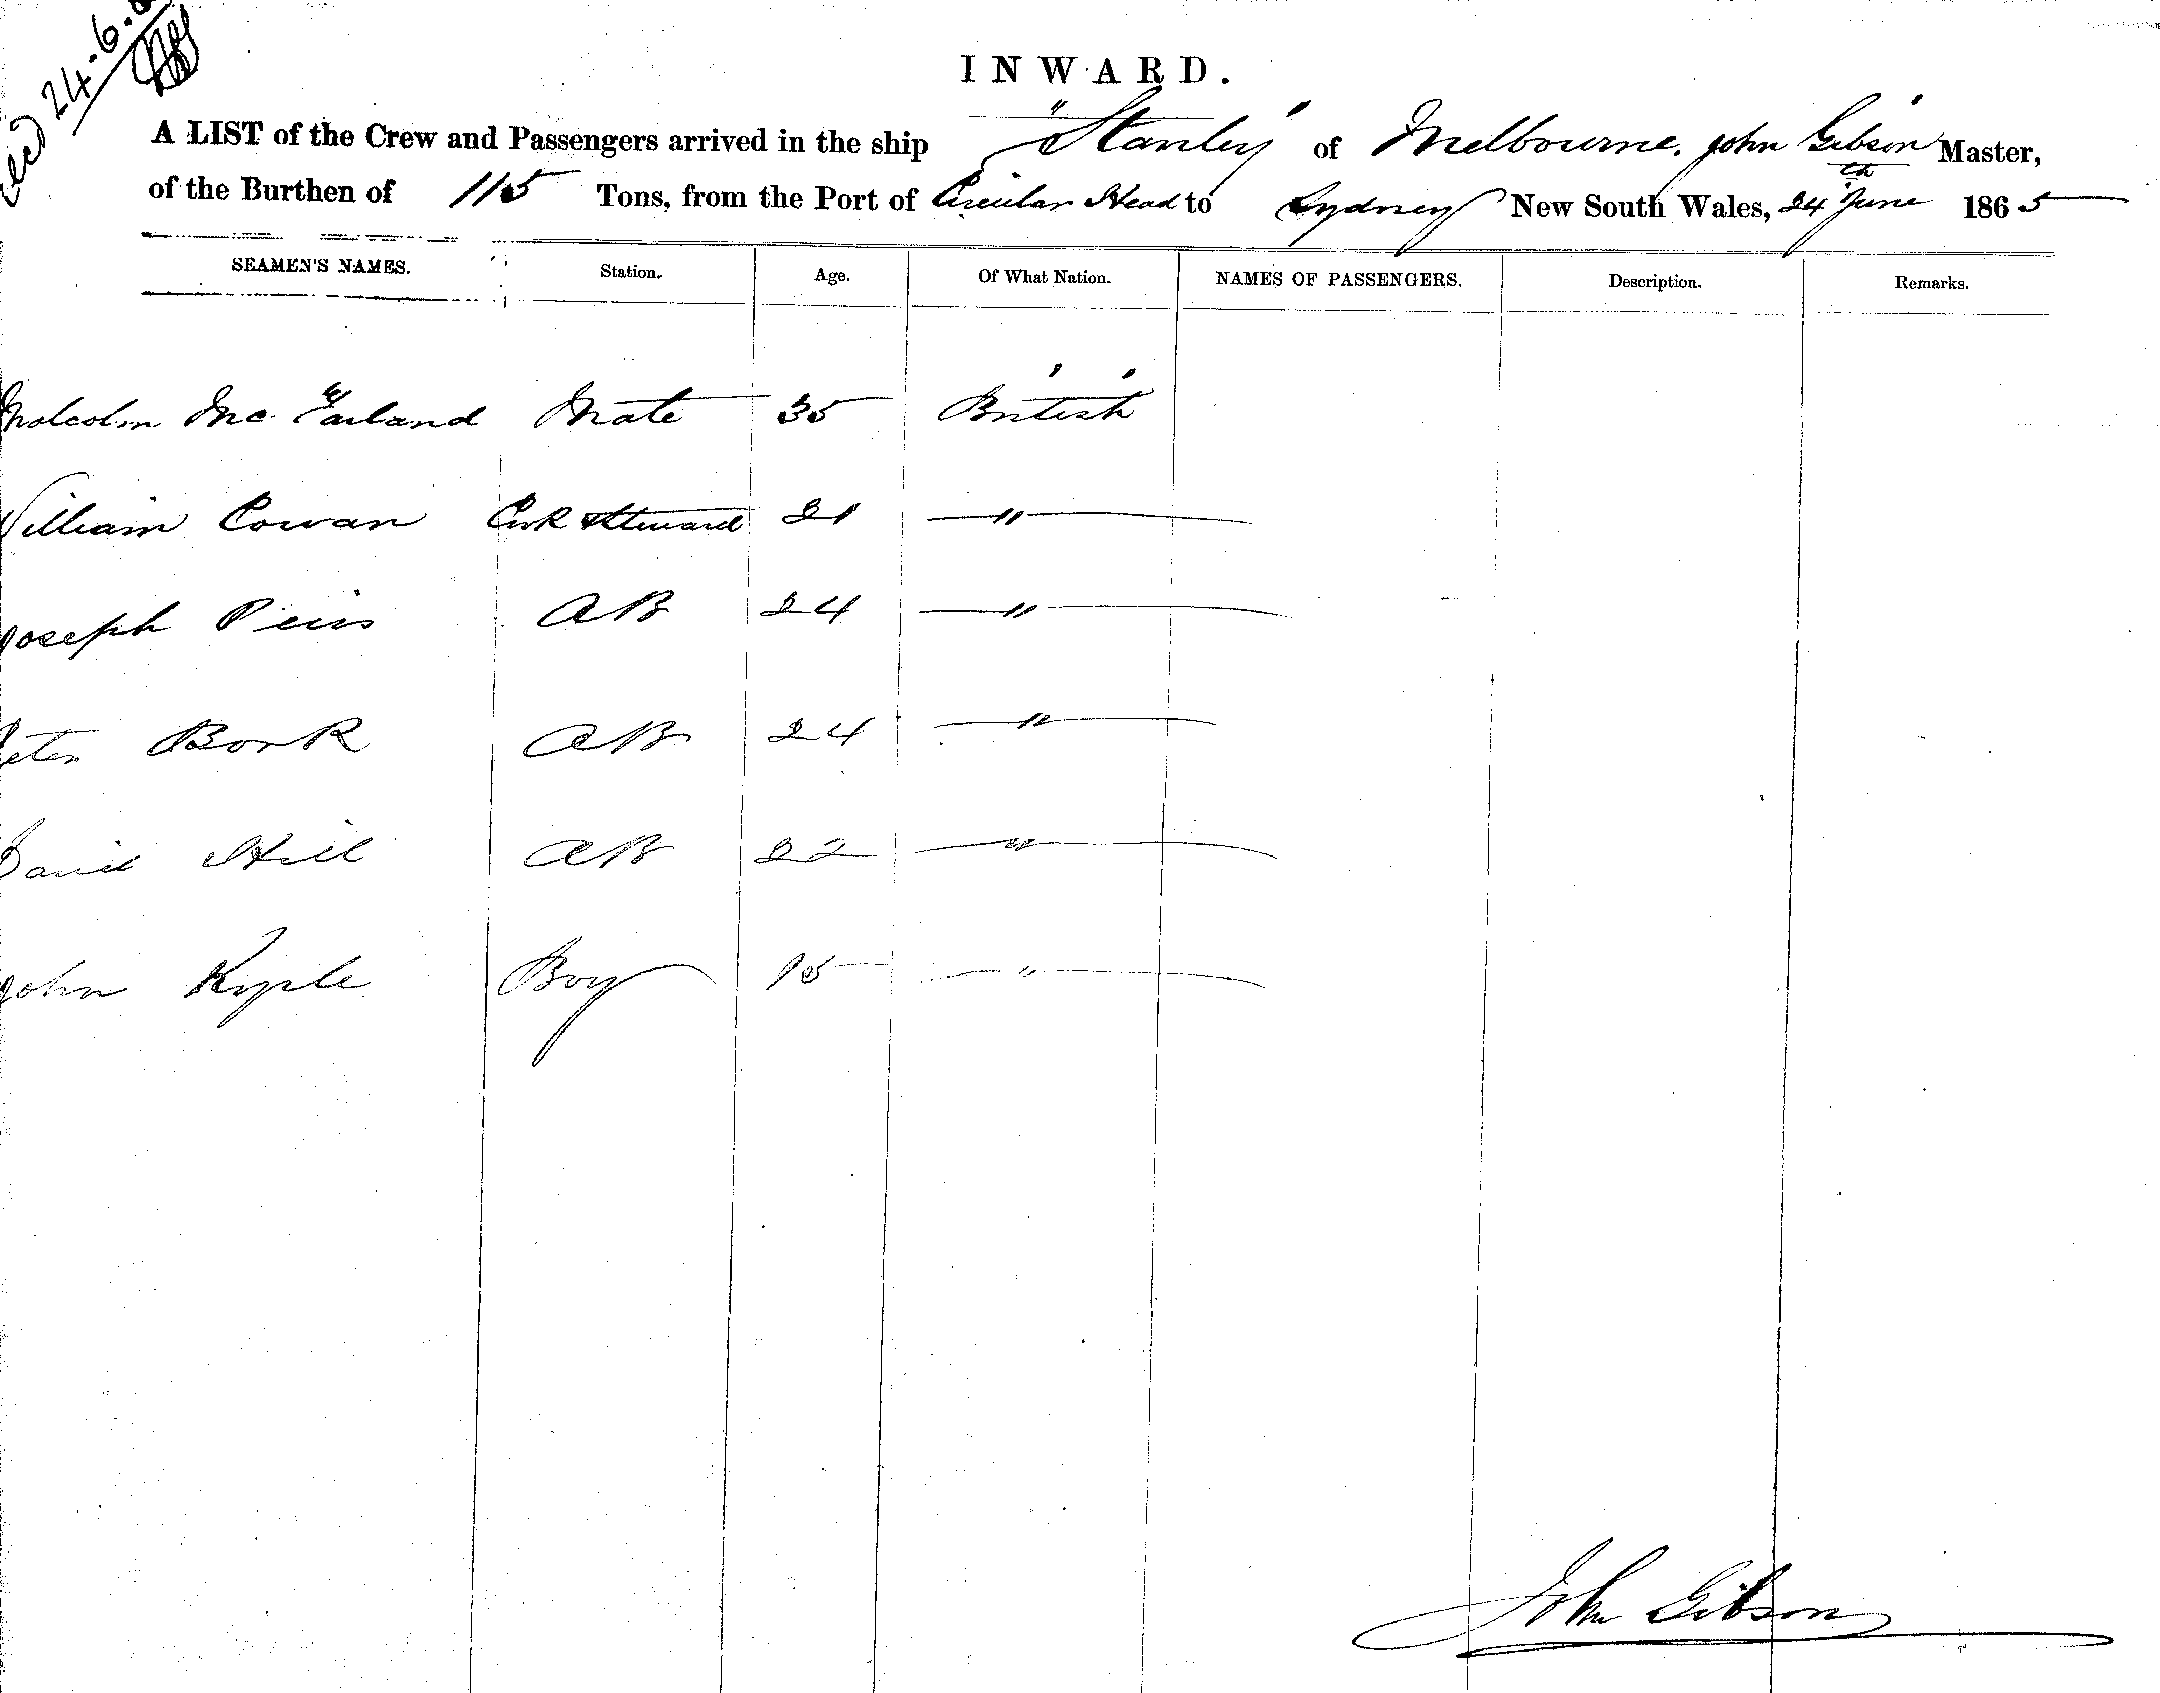 24.6.
INWARD.
A LIST of the Crew and Passengers arrived in the ship "Stanley" of Melbourne, John Gibson Master,
of the Burthen of 115 Tons, from the Port of Circular Head to Sydney New South Wales, 24th June 1865
SEAMEN'S NAMES. Station. Age. Of What Nation. NAMES OF PASSENGERS. Description. Remarks.
Malcolm Mc Farland Mate 35 British
William Cowan Cook & Steward 21 "
Joseph AB 24 "
Peter Bork AB 24 "
David Hill AB 22 "
John Kyple Boy 15 "
John Gibson